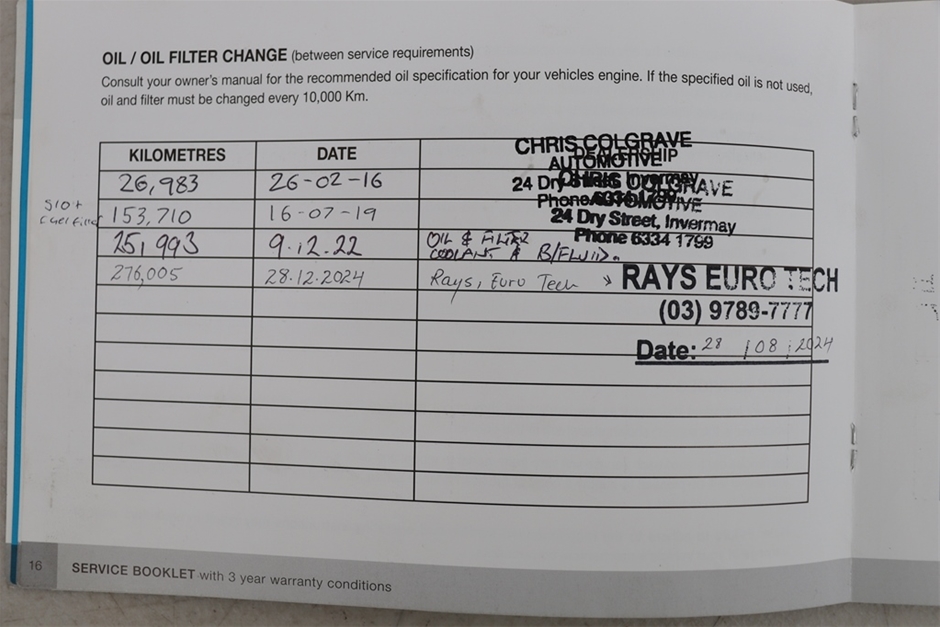 OIL / OIL FILTER CHANGE (between service requirements)
Consult your owner's manual for the recommended oil specification for your vehicles engine. If the specified oil is not used,
oil and filter must be changed every 10,000 Km.
KILOMETRES DATE DEALERSHIP
CHRIS COLGRAVE
AUTOMOTIVE
26,983 26-02-16
24 Dry Street, Invermay
Phone 6334 1799
153,710 16-07-19
CHRIS COLGRAVE
AUTOMOTIVE
24 Dry Street, Invermay
Phone 6334 1799
25,993 9.12.22 OIL & FILTER
COOLANT & B/FLUID.
276,005 28.12.2024 Rays, Euro Tech
RAYS EURO TECH
(03) 9789-7777
Date: 28 / 08 / 2024
16 SERVICE BOOKLET with 3 year warranty conditions